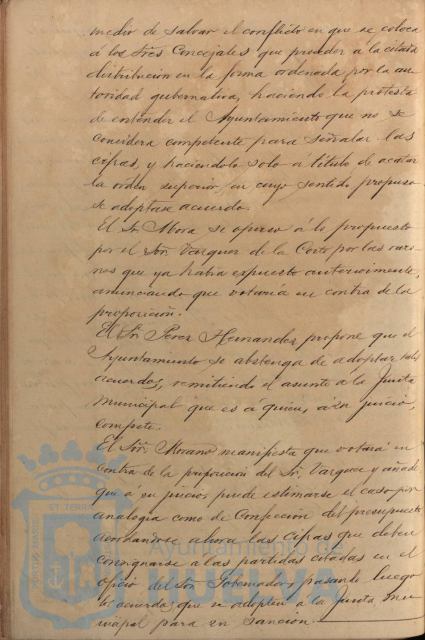 medio de salvar el conflicto en que se coloca
á los Sres Concejales que proceder á la citada
distribución en la forma ordenada por la au-
toridad gubernativa, haciendo la protesta
de entender el Ayuntamiento que no se
considera competente para señalar las
cifras, y haciendolo solo á título de acatar
la orden superior, en cuyo sentido propuso
se adoptase acuerdo.
El Sr Mora se opuso á lo propuesto
por el Sor Vazquez de la Corte por las razo-
nes que ya habia expuesto anteriormente,
anunciando que votaría en contra de la
proposición.
El Sr. Perez Hernandez propone que el
Ayuntamiento se abstenga de adoptar
acuerdos, remitiendo el asunto á la Junta
Municipal que es á quien, á su juicio,
compete.
El Sor. Morano manifiesta que votará en
contra de la proposicion del Sr. Vazquez y añade
que á su juicio, puede estimarse el caso por
analogía como de Confeccion del presupuesto
acordandose ahora las cifras que deben
consignarse a las partidas citadas en el
oficio del Sor Gobernador, pasando luego
los acuerdos que se adopten á la Junta Mu-
nicipal para su sanción.
Ayuntamiento de
HUELVA